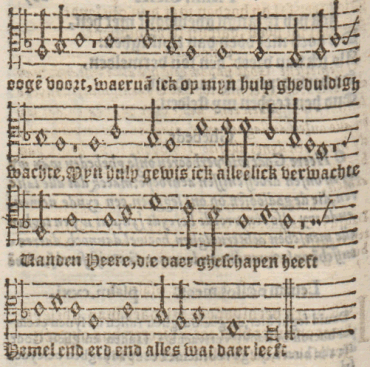 oogẽ voort, waervã ick op myn hulp gheduldigh
wachte, Myn hulp gewis ick alleelick verwachte
Vanden Heere, die daer gheschapen heeft
Hemel end erd end alles wat daer leeft